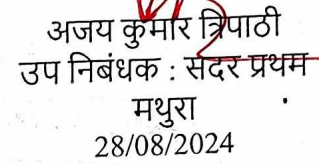 अजय कुमार त्रिपाठी
उप निबंधक : सदर प्रथम
मथुरा
28/08/2024